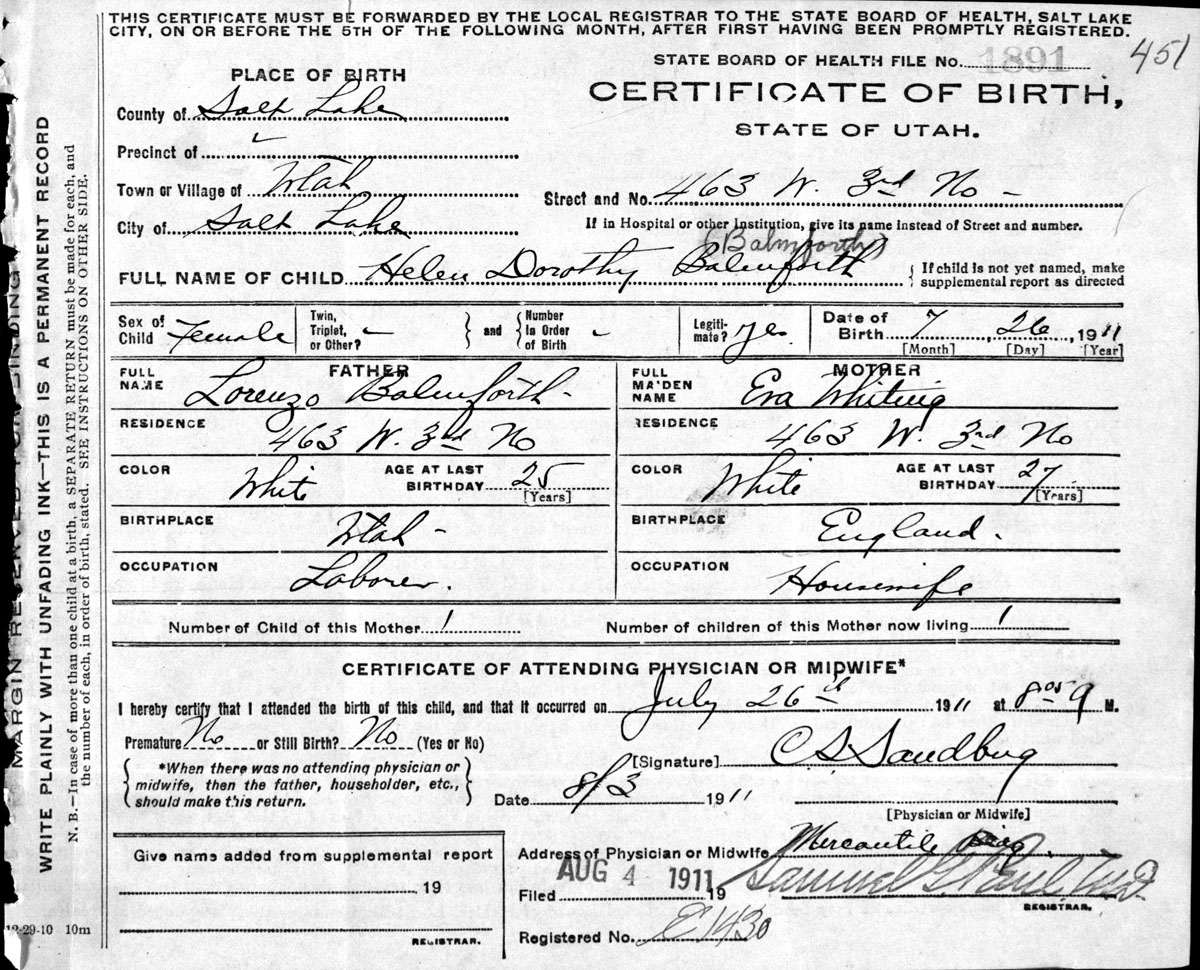 THIS CERTIFICATE MUST BE FORWARDED BY THE LOCAL REGISTRAR TO THE STATE BOARD OF HEALTH, SALT LAKE
CITY, ON OR BEFORE THE 5TH OF THE FOLLOWING MONTH, AFTER FIRST HAVING BEEN PROMPTLY REGISTERED.
451
STATE BOARD OF HEALTH FILE No. 1891
PLACE OF BIRTH
CERTIFICATE OF BIRTH,
STATE OF UTAH.
County of Salt Lake
Precinct of
Town or Village of Utah
Street and No. 463 W. 3rd No -
City of Salt Lake
If in Hospital or other Institution, give its name instead of Street and number.
(Balmforth)
FULL NAME OF CHILD Helen Dorothy Balmforth
{ If child is not yet named, make
supplemental report as directed
Sex of Child Female
Twin, Triplet, or Other? -
and
Number In Order of Birth -
Legiti-mate? yes
Date of Birth 7, 26, 1911
[Month] [Day] [Year]
FATHER
FULL NAME Lorenzo Balmforth -
RESIDENCE 463 W. 3rd No
COLOR White
AGE AT LAST BIRTHDAY 25
[Years]
BIRTHPLACE Utah -
OCCUPATION Laborer.
MOTHER
FULL MAIDEN NAME Eva Whiting
RESIDENCE 463 W. 3rd No
COLOR White
AGE AT LAST BIRTHDAY 27
[Years]
BIRTHPLACE England -
OCCUPATION Housewife
Number of Child of this Mother 1
Number of children of this Mother now living 1
CERTIFICATE OF ATTENDING PHYSICIAN OR MIDWIFE*
I hereby certify that I attended the birth of this child, and that it occurred on July 26th 1911 at 8 05 M.
Premature No or Still Birth? No (Yes or No)
*When there was no attending physician or
midwife, then the father, householder, etc.,
should make this return.
[Signature] C S Sandberg
Date 8/3 1911
[Physician or Midwife]
Address of Physician or Midwife Mercantile
Give name added from supplemental report
19
REGISTRAR.
Filed AUG 4 1911 19
Samuel G Paul
REGISTRAR.
Registered No. E1430
12-29-10 10m
MARGIN RESERVED FOR BINDING
WRITE PLAINLY WITH UNFADING INK—THIS IS A PERMANENT RECORD
N. B.—In case of more than one child at a birth, a SEPARATE RETURN must be made for each, and
the number of each, in order of birth, stated. SEE INSTRUCTIONS ON OTHER SIDE.